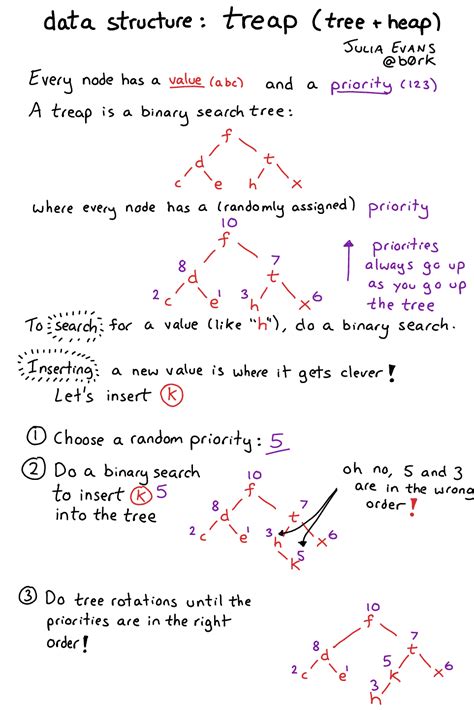 data structure: treap (tree + heap)
JULIA EVANS
@b0rk
Every node has a value (abc) and a priority (123)
A treap is a binary search tree:
f
d t
c e h x
where every node has a (randomly assigned) priority
10
f
8 7
d t
2 c e 1 3 h x 6
priorities
always go up
as you go up
the tree
To search for a value (like "h"), do a binary search.
Inserting a new value is where it gets clever!
Let's insert k
① Choose a random priority: 5
② Do a binary search
to insert k 5
into the tree
10
f
8 7
d t
2 c e 1 3 h x 6
k 5
oh no, 5 and 3
are in the wrong
order!
③ Do tree rotations until the
priorities are in the right
order!
10
f
8 7
d t
2 c e 1 5 k x 6
3 h